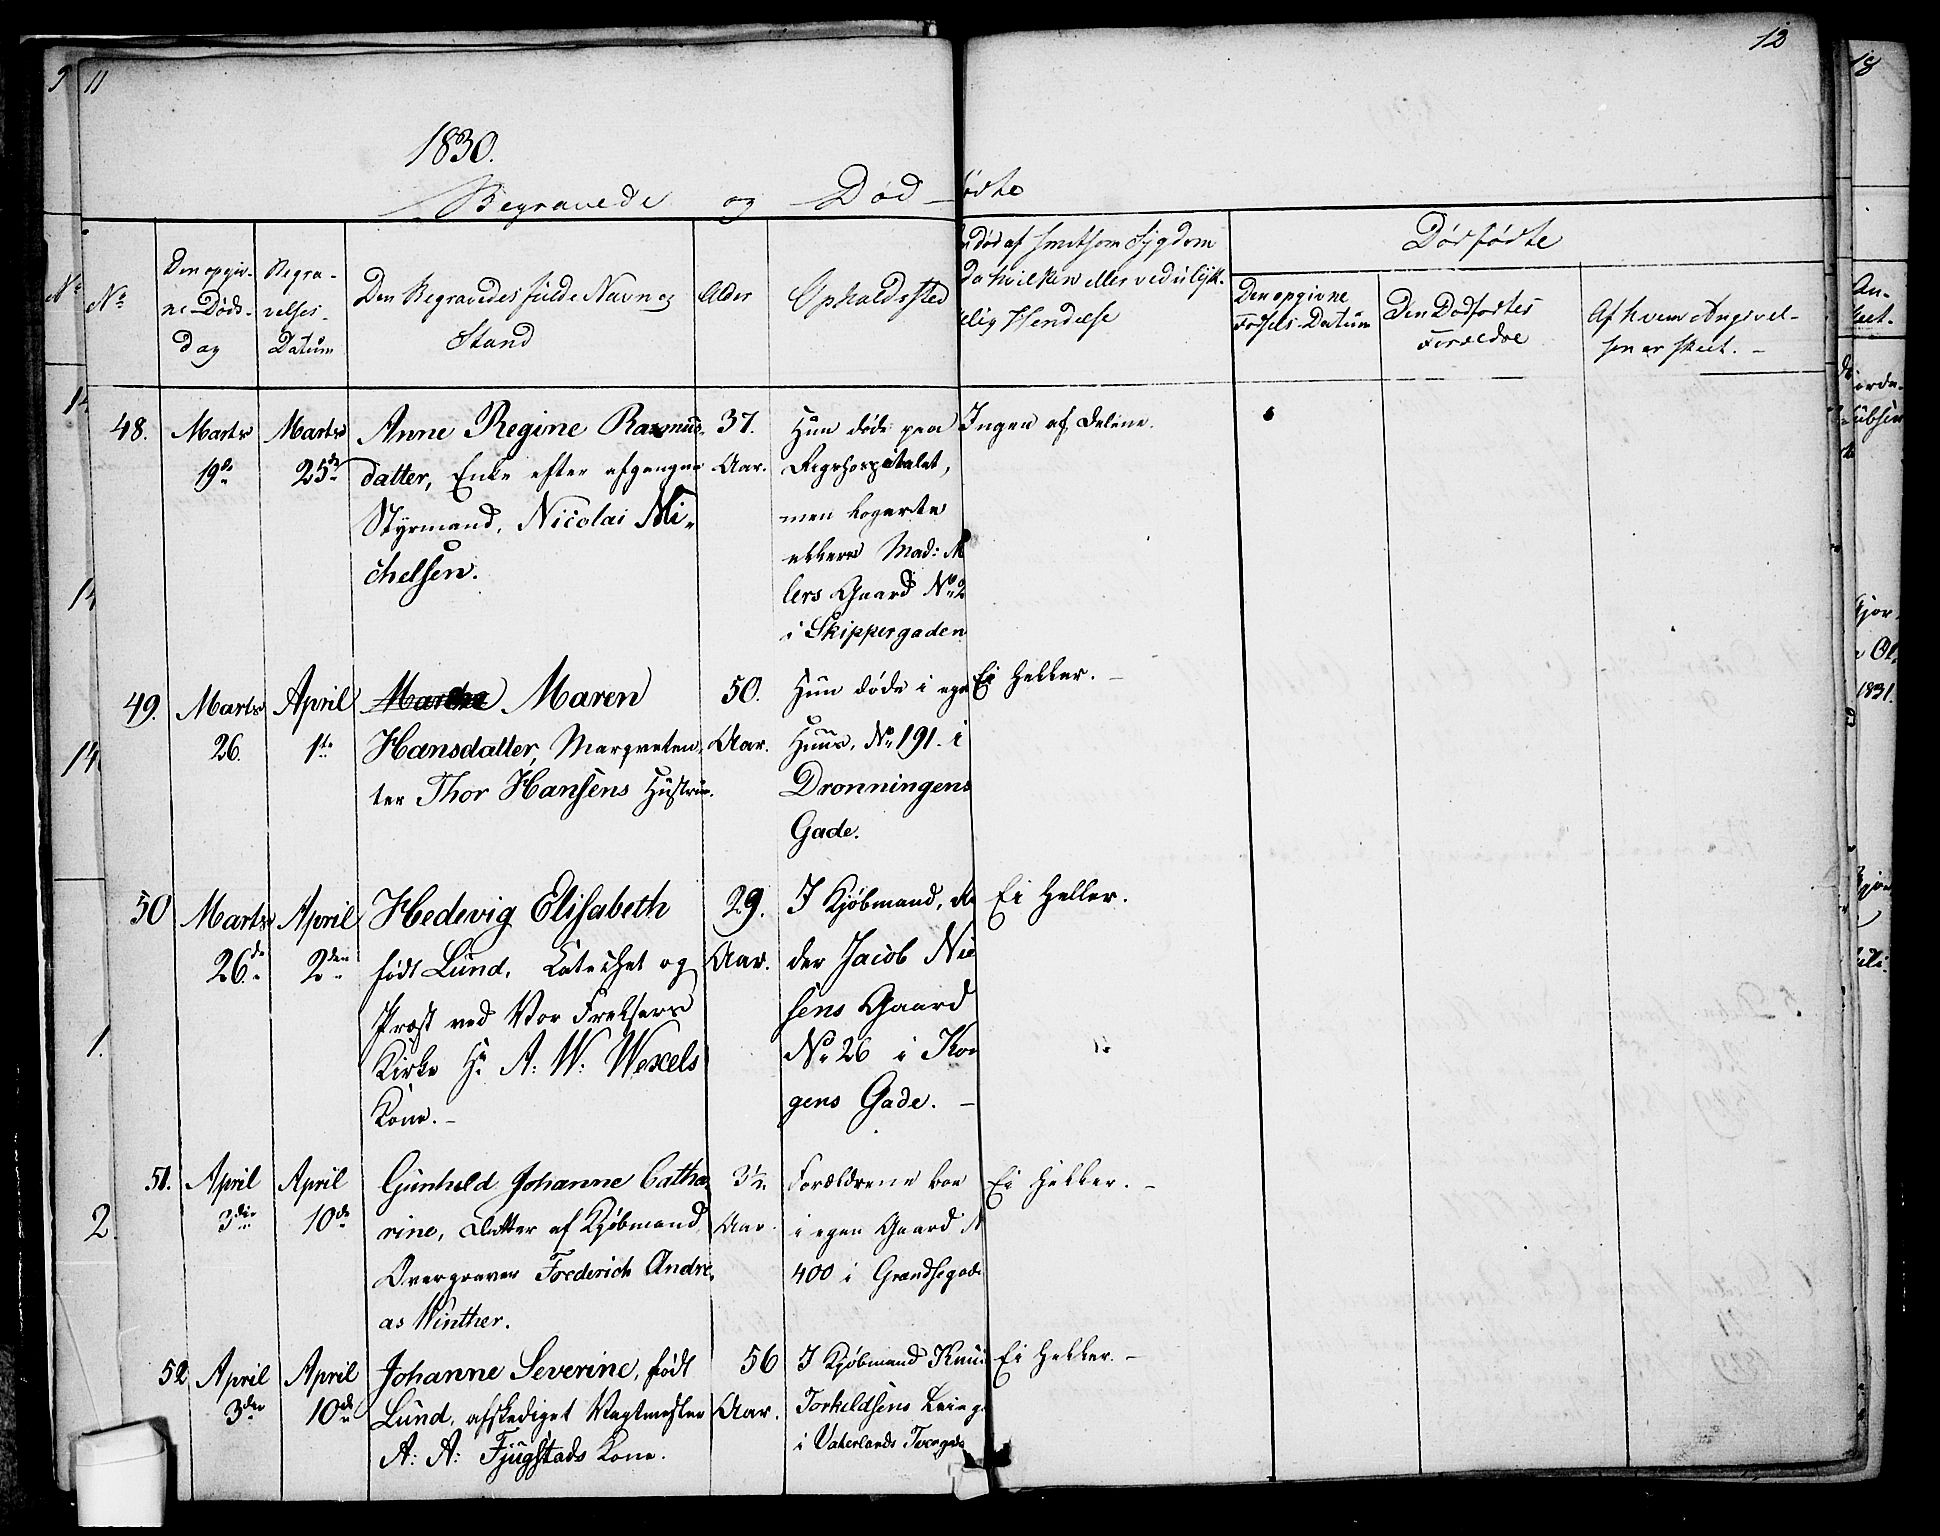 11
12
1830.
Begravede og Dødfødte
No
Den opgiv-
ne Døds-
dag
Begra-
velses-
Datum
Den Begravedes fulde Navn og
Stand
Alder
Opholdssted
Død af smitsom Sygdom
da hvilken eller ved ulyk-
kelig Hændelse
Dødfødte
Den opgivne
Fødsels-Datum
Den Dødfødtes
Forældre
Af hvem Angivel-
sen er skeet. -
48.
Marts
19de
Marts
25de
Anne Regine Rasmus-
datter, Enke efter afgangne
Styrmand, Nicolai Mi-
chelsen.
37.
Aar.
Hun døde paa
Rigshospitalet,
men logerte
ellers Mad:
lers Gaard No
i Skippergaden
Ingen af Delene.
49.
Marts
26.
April
1ste
Maren
Hansdatter, Marqveten-
ter Thor Hansens Hustrue.
50.
Aar.
Hun døde i eget
Huus, No 191. i
Dronningens
Gade.
Ei heller. -
50
Marts
26de
April
2den
Hedevig Elisabeth
født Lund, Catechet og
Præst ved Vor Frelsers
Kirke Hr A: W: Wexels
Kone. -
29.
Aar.
I Kjøbmand,
der Jacob Niel
sens Gaard
No 26 i Kon
gens Gade. -
Ei heller.
51.
April
3die
April
10de
Gunhild Johanne Catha-
rine, Datter af Kjøbmand
Overgraver Frederich Andre-
as Winther.
3½
Aar.
Forældrene boe
i egen Gaard N
400 i Grændsegade
Ei heller. -
52
April
3die
April
10de
Johanne Severine, født
Lund, afskediget Vagtmester
A: A: Fjugstads Kone.
56
Aar.
I Kjøbmand Knud
Torkildsens Leieg
i Vaterlands Tvergade
Ei heller. -